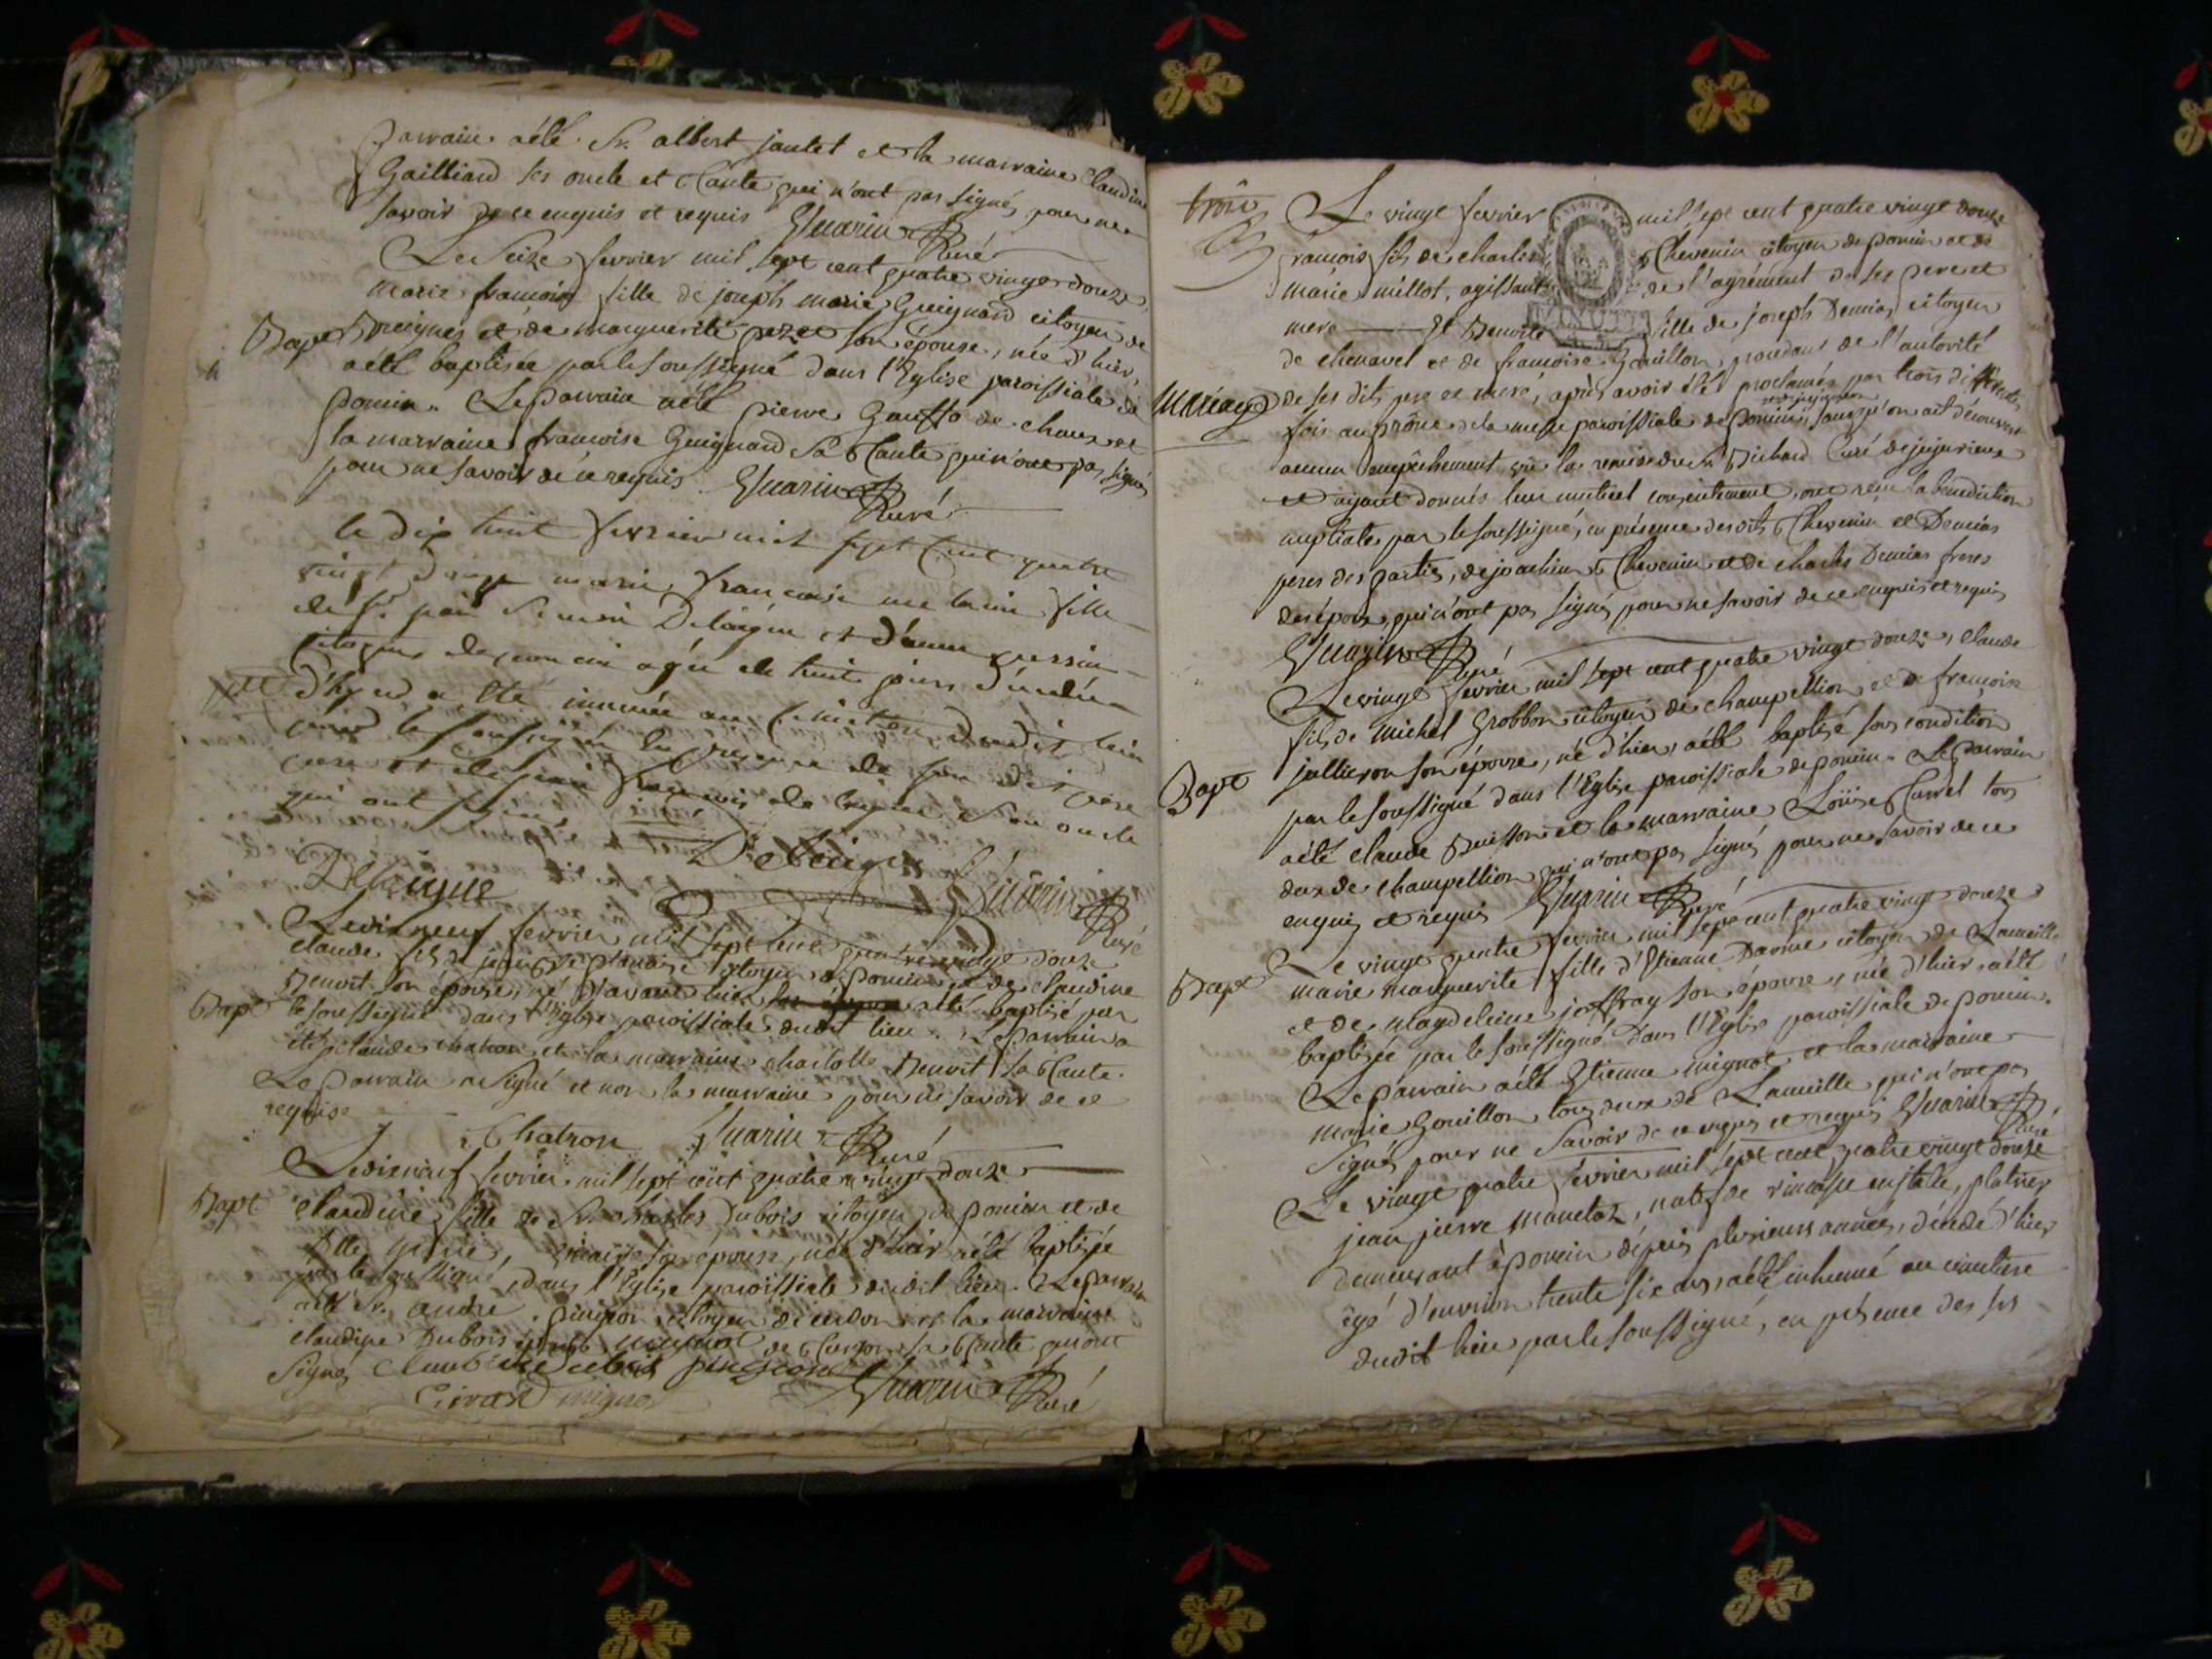 parrain a été Sr. albert jantet et la marraine Claudine
Gailliard ses oncle et tante qui n'ont pas signés pour ne
savoir de ce enquis et requis Guarin Curé
Le Seize fevrier mil sept cent quatre vingt douze
marie francoise fille de joseph marie Guignard citoyen de
Bapt et de marguerite son épouse, née d'hier,
a été baptisée par le soussigné dans l'Eglise paroissiale de
poncin. Le parrain a été pierre de chaux et
la marraine francoise Guignard sa tante qui n'ont pas signés
pour ne savoir de ce requis Guarin Curé
le dix huit fevrier mil sept cent quatre
vingt douze marie francaise fille
de Sr. et d'anne
citoyens de poncin agée de huit jours décédée
d'hyer a été inumée au cimetiere dudit lieu
par le soussigné en presence de son dit père
et de jean francois son oncle
qui ont signé
Guarin Curé
Le dix neuf fevrier mil sept cent quatre vingt douze
claude fils de jean citoyen de poncin et de claudine
Benoit son épouse, né d'avant hier a été baptisé par
Bapt le soussigné dans l'Eglise paroissiale dudit lieu. Le parrain a
été claude chatron et la marraine charlotte Benoit sa tante.
Le parrain a signé et non la marraine pour ne savoir de ce
requise
Chatron Guarin Curé
Le dix neuf fevrier mil sept cent quatre vingt douze
Bapt claudine fille de Sr. charles Dubois citoyen de poncin et de
son épouse, née d'hier a été baptisée
par le soussigné dans l'Eglise paroissiale dudit lieu. Le parrain
a été Sr. andré pingeon citoyen de et la marraine
claudine Dubois de sa tante qui ont
signés claudine dubois pingeon Guarin Curé
Girard
trois Le vingt fevrier mil sept cent quatre vingt douze
françois fils de charles Chevenin citoyen de poncin et de
marie millot, agissant de l'agrément de ses pere et
mere Et Benoite fille de joseph Demias citoyen
de chenavel et de francoise Gouillon procedant de l'autorité
Mariage de ses dits pere et mere, après avoir été proclamés par trois differentes
fois au prône de la messe paroissiale de poncin et jujurieux sans qu'on ait découvert
aucun empêchement vû la remise du Sr. Richard Curé de jujurieux
et ayant donnés leur mutuel consentement, ont reçu la benediction
nuptiale par le soussigné, en présence desdits Chevenin et Demias
peres des parties, de joachim Chevenin et de charles Demias freres
des époux, qui n'ont pas signés pour ne savoir de ce enquis et requis
Guarin Curé
Le vingt fevrier mil sept cent quatre vingt douze, claude
fils de michel Grobbon citoyen de champeillon et de françoise
jullieron son épouse, né d'hier, a été baptizé sous condition
Bapt par le soussigné dans l'Eglise paroissiale de poncin. Le parrain
a été claude Buisson et la marraine Loüise tous
deux de champeillon qui n'ont pas signés pour ne savoir de ce
enquis et requis Guarin Curé
Le vingt quatre fevrier mil sept cent quatre vingt douze
Bapt marie marguerite fille d'Etienne citoyen de
et de magdeleine joffray son épouse, née d'hier a été
baptizée par le soussigné dans l'Eglise paroissiale de poncin.
Le parrain a été Etienne mignot et la marraine
marie Gouillon tous deux de qui n'ont pas
signés pour ne savoir de ce enquis et requis Guarin Curé
Le vingt quatre fevrier mil sept cent quatre vingt douze
jean pierre natif de en italie, platrier
demeurant à poncin depuis plusieurs années, décédé d'hier
âgé d'environ trente six ans, a été inhumé au cimetiere
dudit lieu par le soussigné, en présence des srs